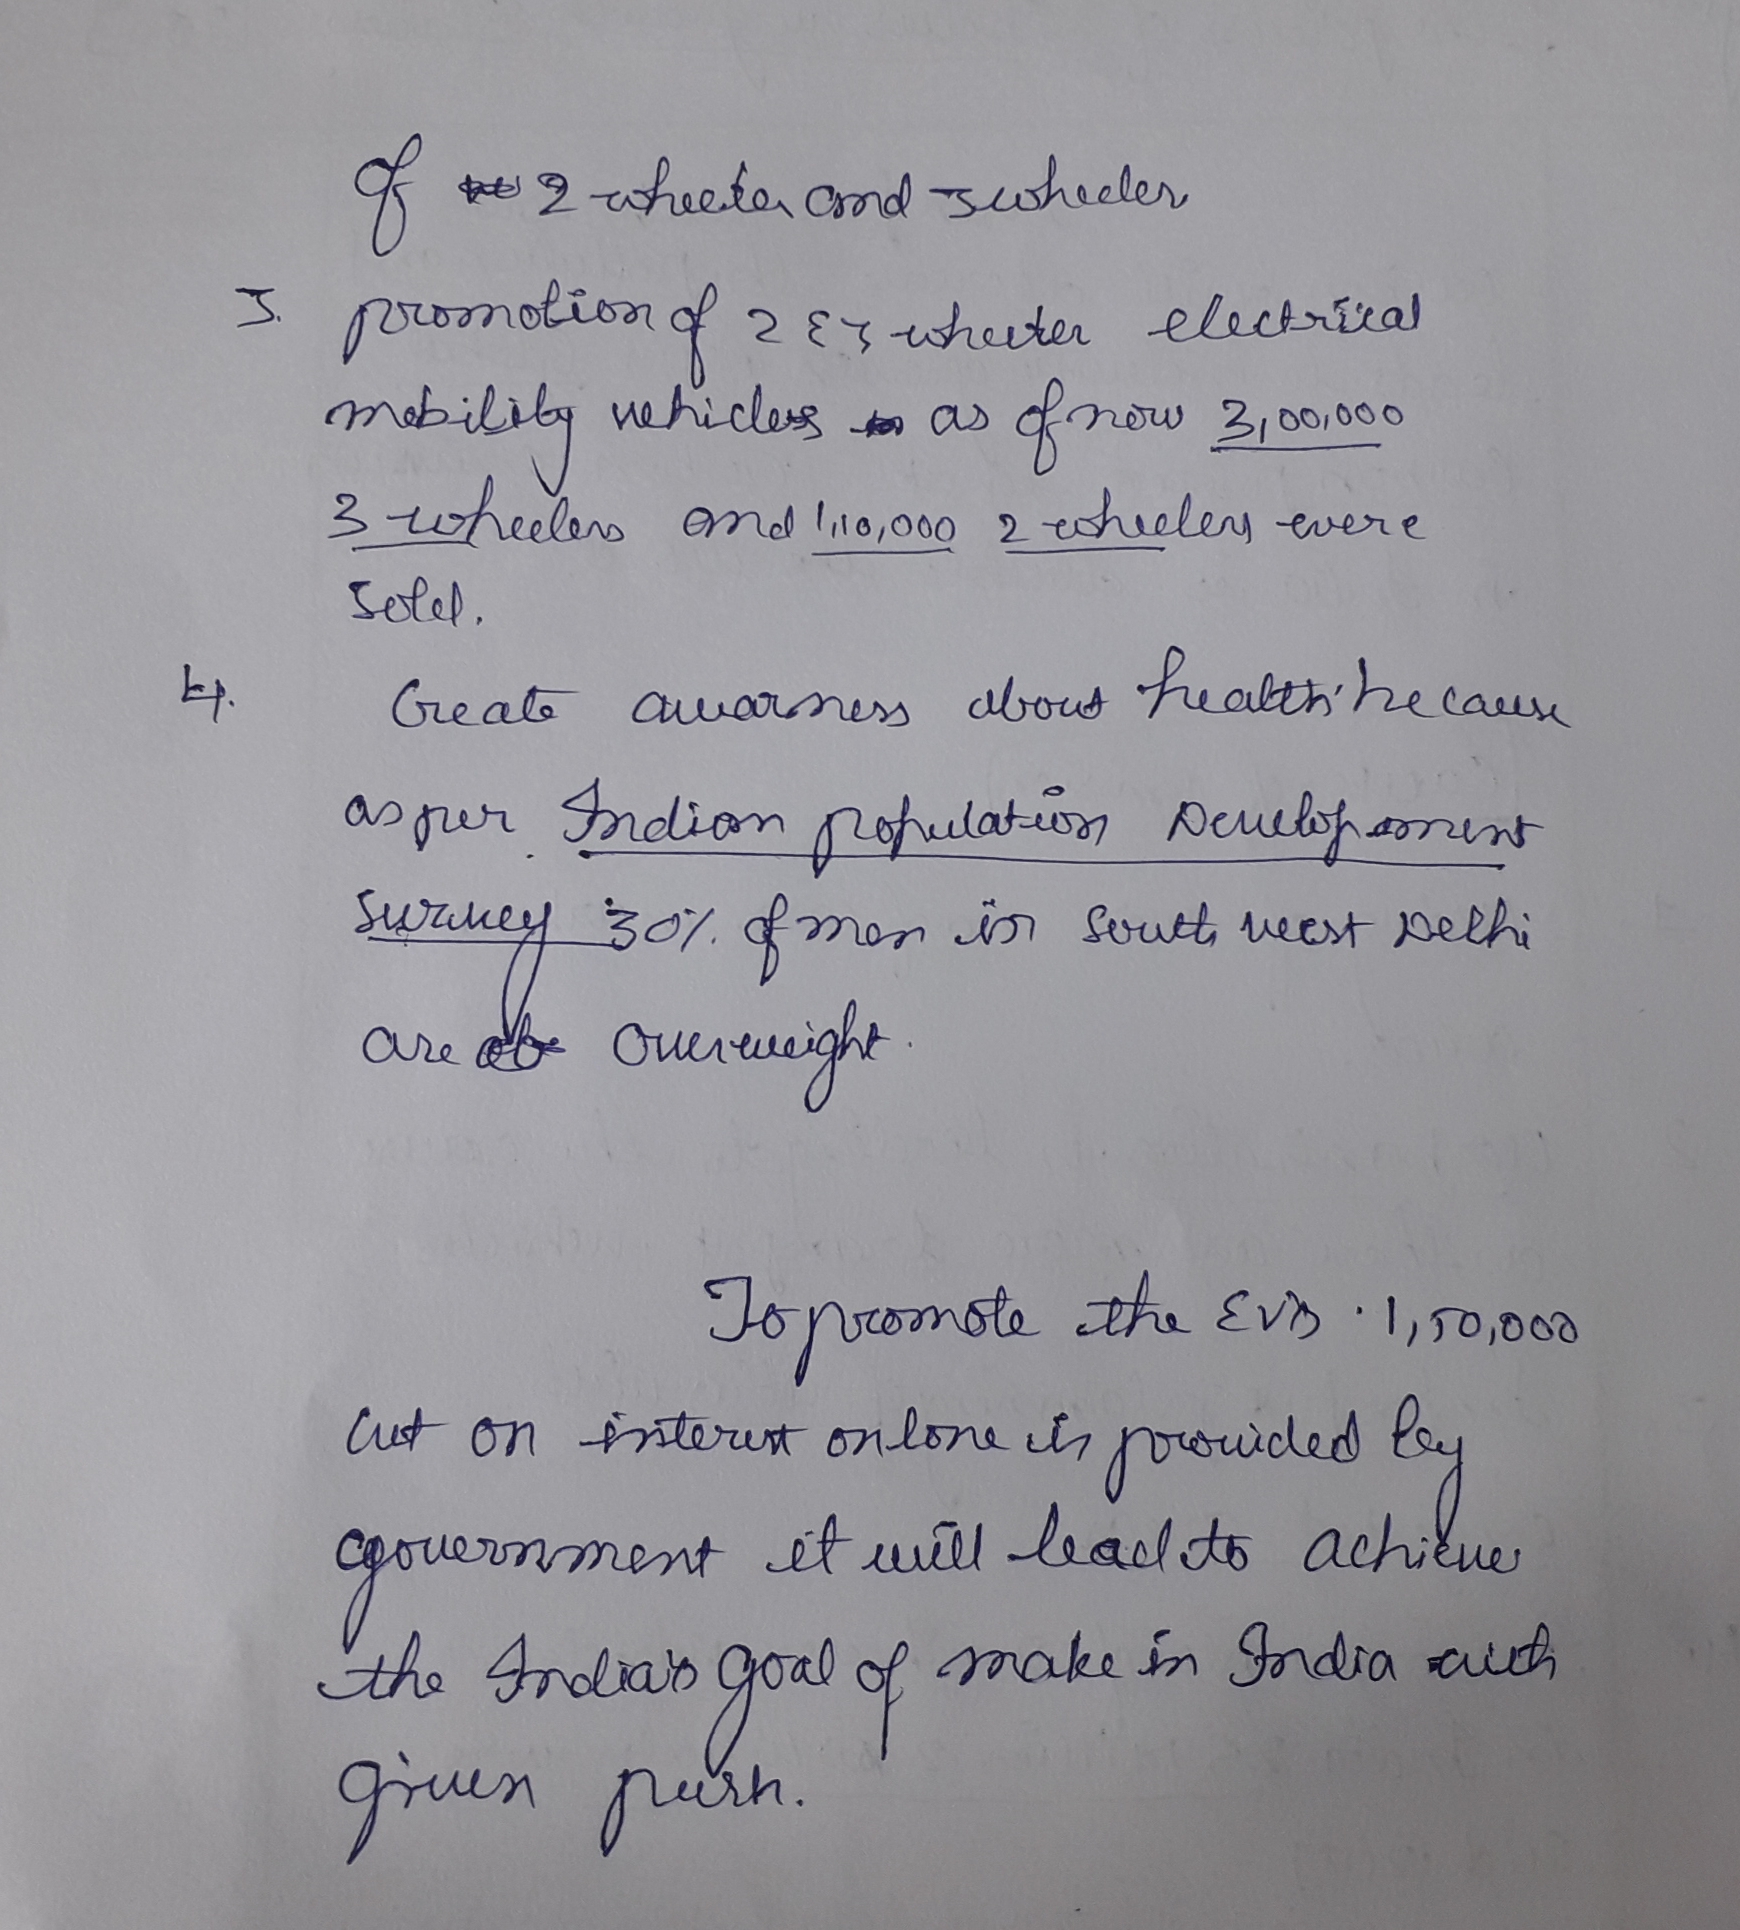 of 2 wheeler and 3 wheeler
3. promotion of 2 & 3 wheeler electrical
mobility vehicles as of now 3,00,000
3 wheelers and 1,10,000 2 wheelers were
sold.
4. Create awarness about health because
as per Indian population Development
survey 30% of men in South west Delhi
are overweight.
To promote the EVs 1,50,000
cut on interest on lone is provided by
government it will lead to achieve
the India's goal of make in India with
given push.